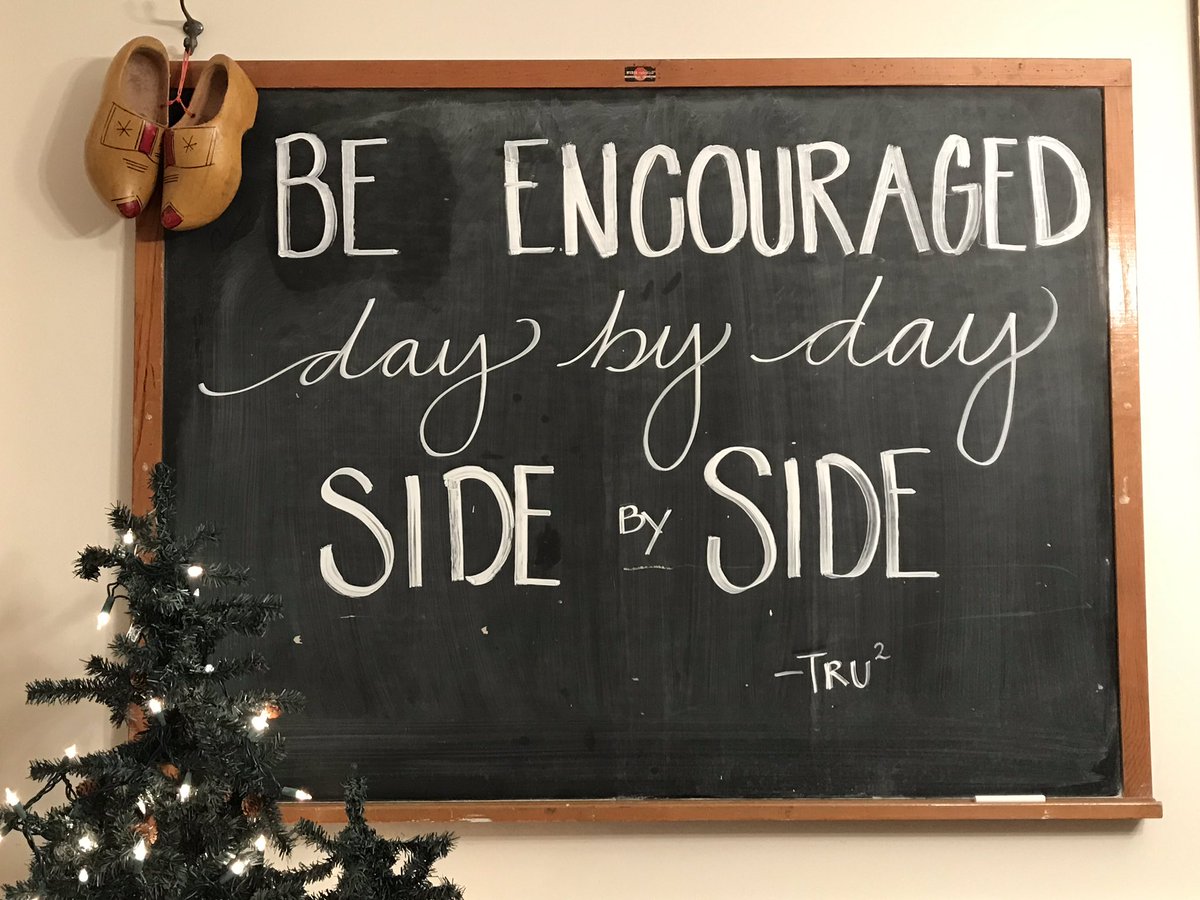 BE ENCOURAGED
day by day
SIDE BY SIDE
-TRU²